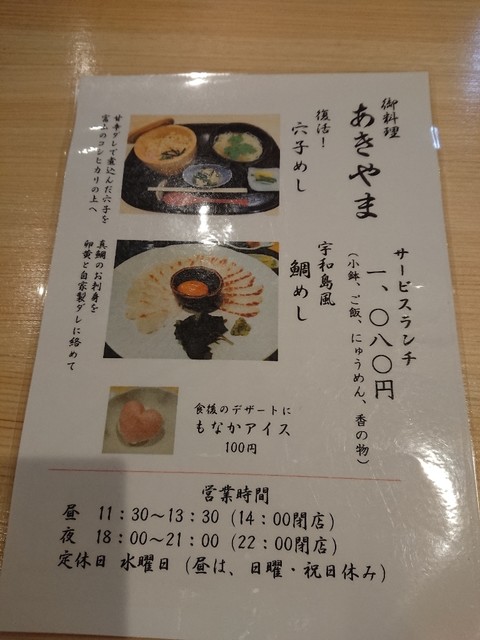 御料理
あきやま
サービスランチ
一、〇八〇円
(小鉢、ご飯、にゅうめん、香の物)
復活!
穴子めし
甘辛ダレで煮込んだ穴子を
富山のコシヒカリの上へ
宇和島風
鯛めし
真鯛のお刺身を
卵黄と自家製ダレに絡めて
食後のデザートに
もなかアイス
100円
営業時間
昼 11:30~13:30 (14:00閉店)
夜 18:00~21:00 (22:00閉店)
定休日 水曜日 (昼は、日曜・祝日休み)